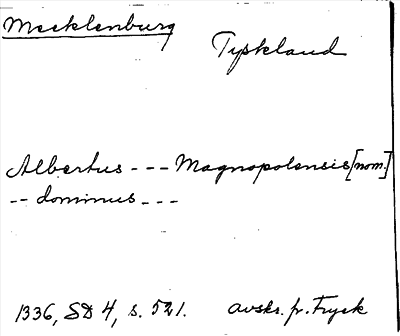 Mecklenburg
Tyskland
Albertus --- Magnopolensis [nom.]
-- dominus ---
1336, SD 4, s. 521. avskr. fr. tryck